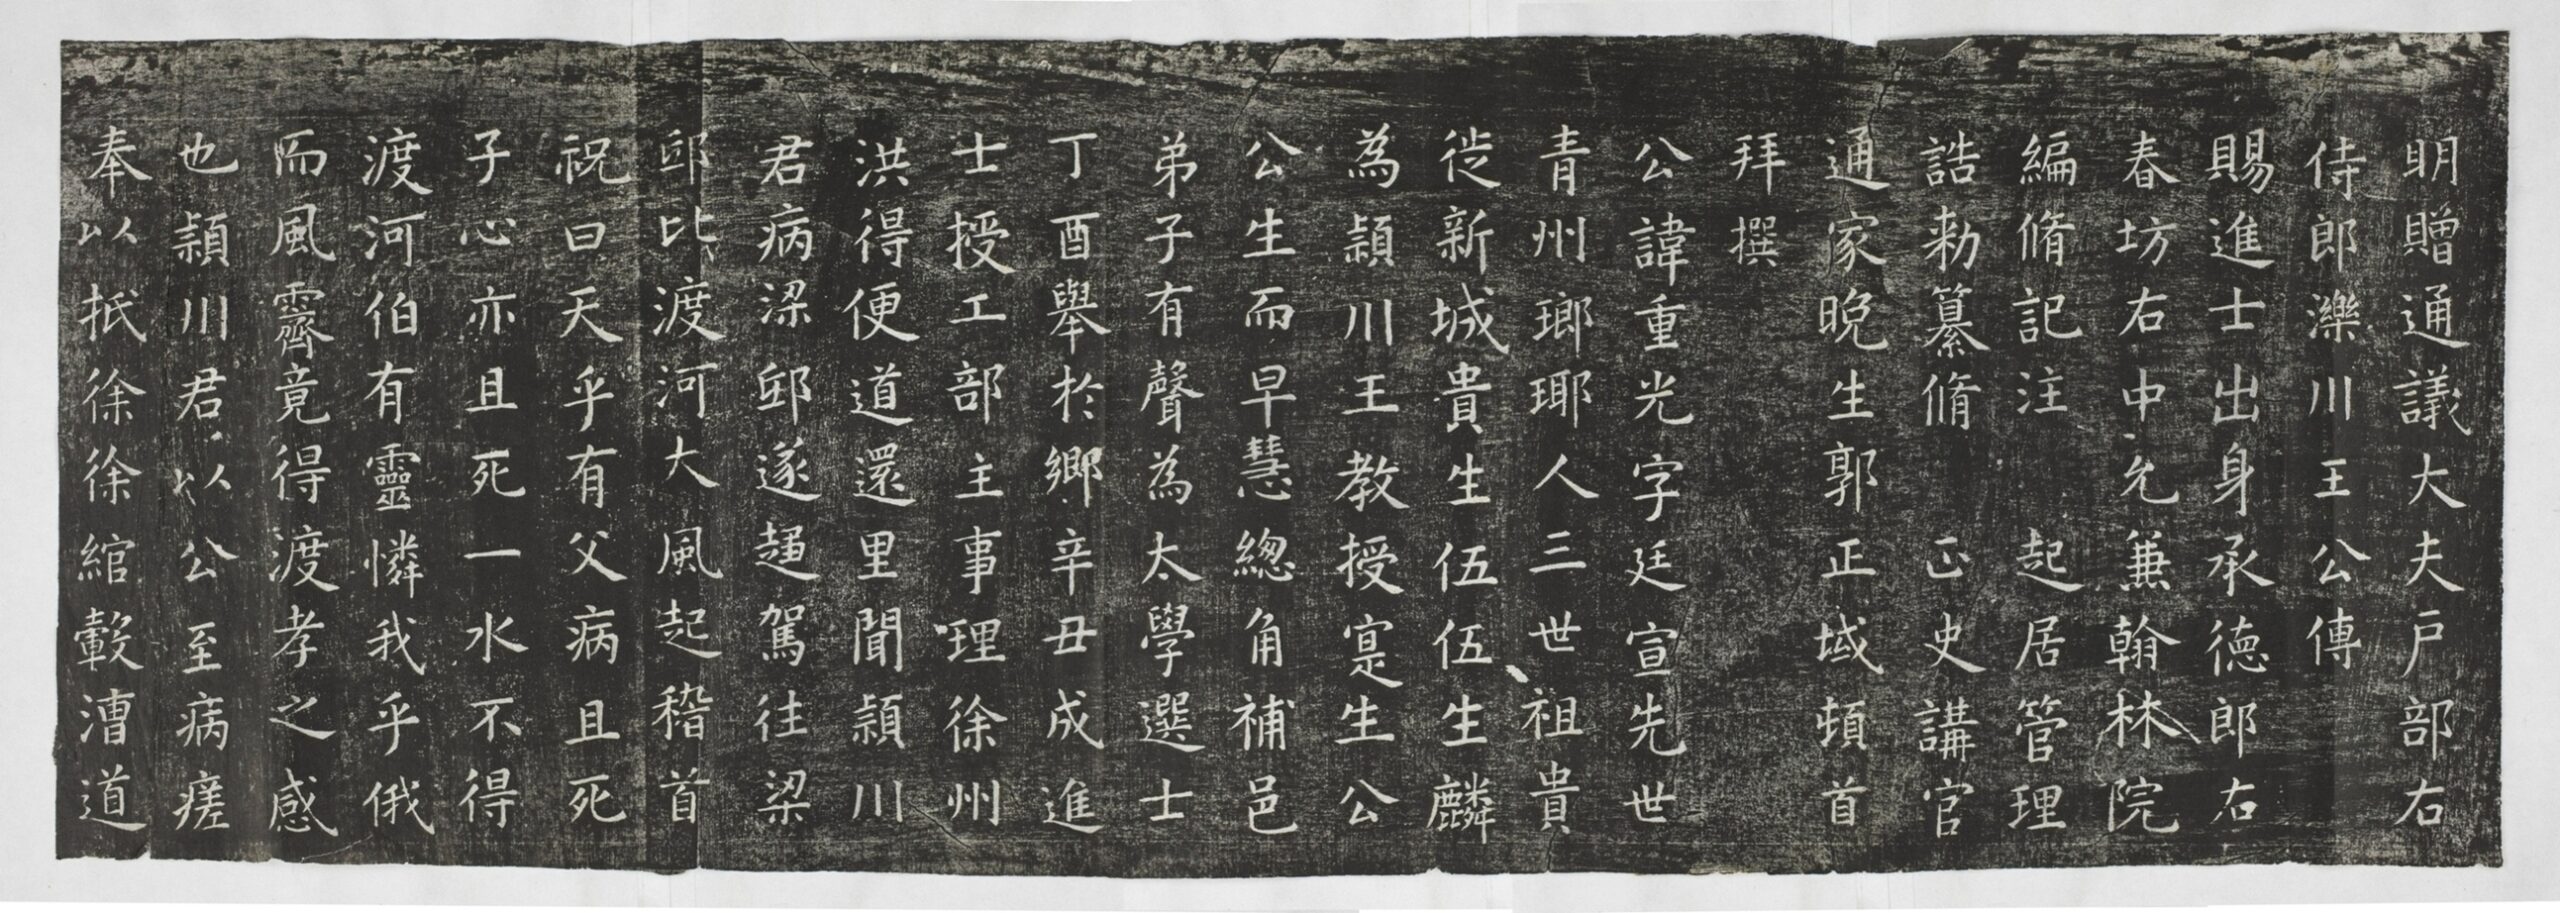 明贈通議大夫戶部右
侍郎濼川王公傳
賜進士出身承德郎右
春坊右中允兼翰林院
編脩記注　起居管理
誥勅纂脩　正史講官
通家晚生郭正域頓首
拜撰
公諱重光字廷宣先世
青州瑯琊人三世祖貴
徙新城貴生伍伍生麟
為潁川王教授寔生公
公生而早慧總角補邑
弟子有聲為太學選士
丁酉舉於鄉辛丑成進
士授工部主事理徐州
洪得便道還里聞潁川
君病梁邱遂趨駕往梁
邱比渡河大風起稽首
祝曰天乎有父病且死
子心亦且死一水不得
渡河伯有靈憐我乎俄
而風霽竟得渡孝之感
也潁川君以公至病瘥
奉以抵徐徐綰轂漕道